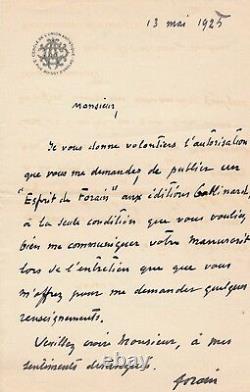 13 mai 1925
CERCLE DE L'UNION ARTISTIQUE
Monsieur,
Je vous donne volontiers l'autorisation
que vous me demandez de publier un
"Esprit de Forain" aux éditions Gallimard,
à la seule condition que vous vouliez
bien me communiquer votre manuscrit
lors de l'entretien que que vous
m'offrez pour me demander quelques
renseignements.
Veuillez croire Monsieur, à mes
sentiments distingués.
forain